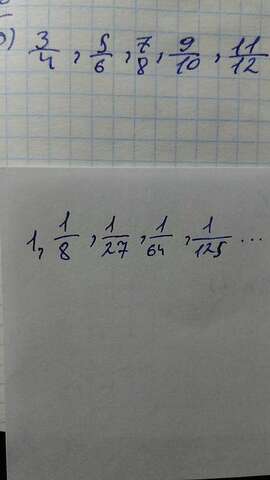 ) 3/4, 5/6, 7/8, 9/10, 11/12
1, 1/8, 1/27, 1/64, 1/125 ...